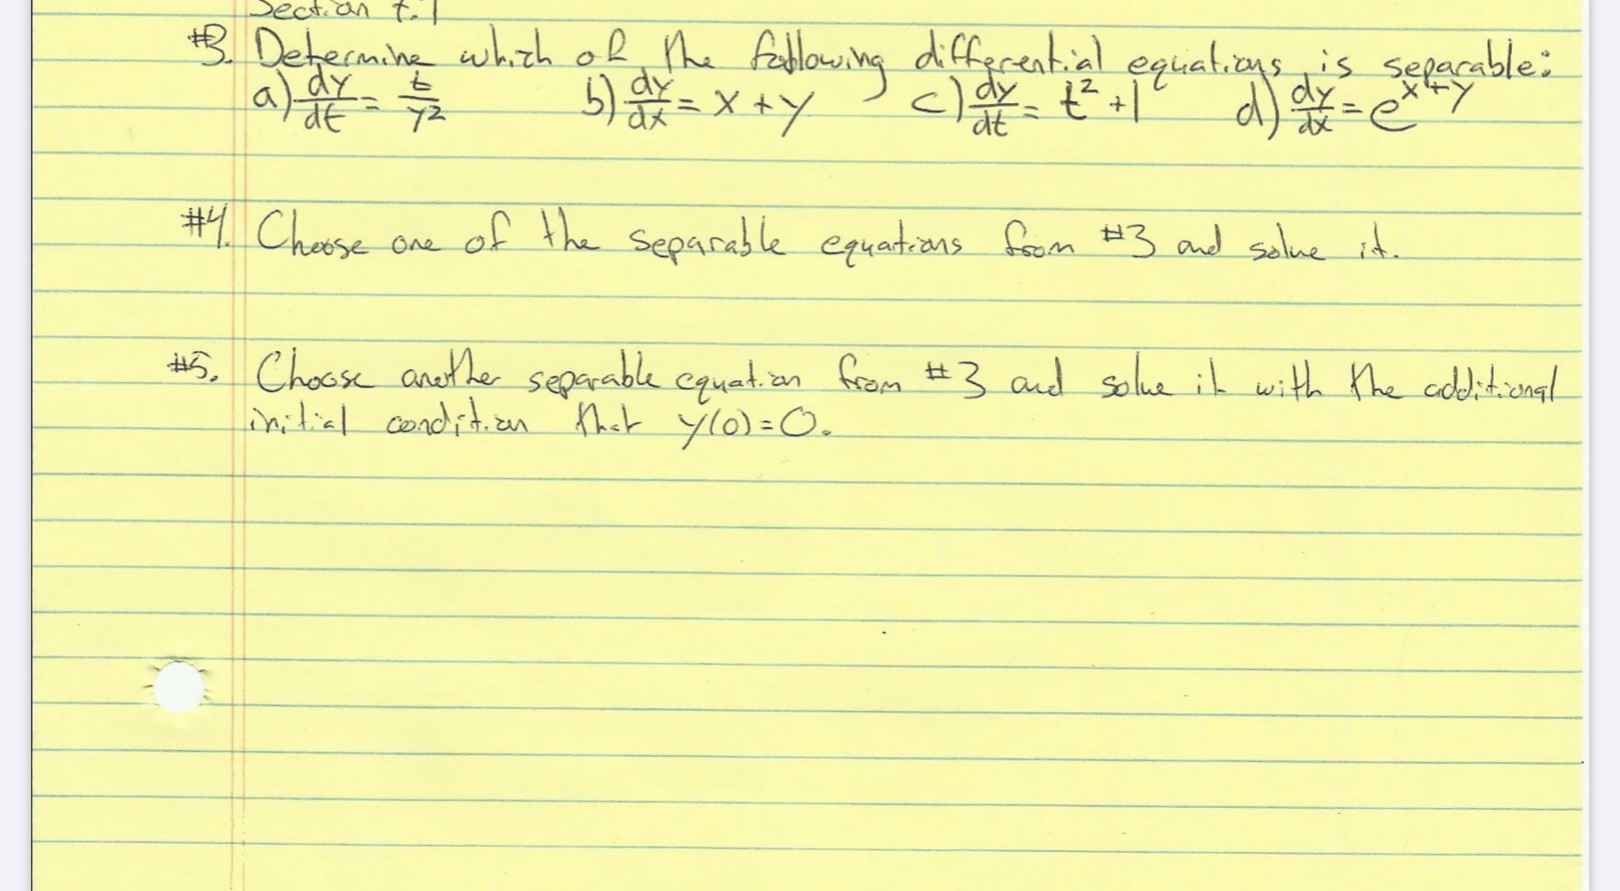 Section 7.1
#3. Determine which of the following differential equations is separable:
a) dy/dt = t/y² b) dy/dx = x + y c) dy/dt = t² + 1 d) dy/dx = e^(x+y)
#4. Choose one of the separable equations from #3 and solve it.
#5. Choose another separable equation from #3 and solve it with the additional
initial condition that y(0)=0.